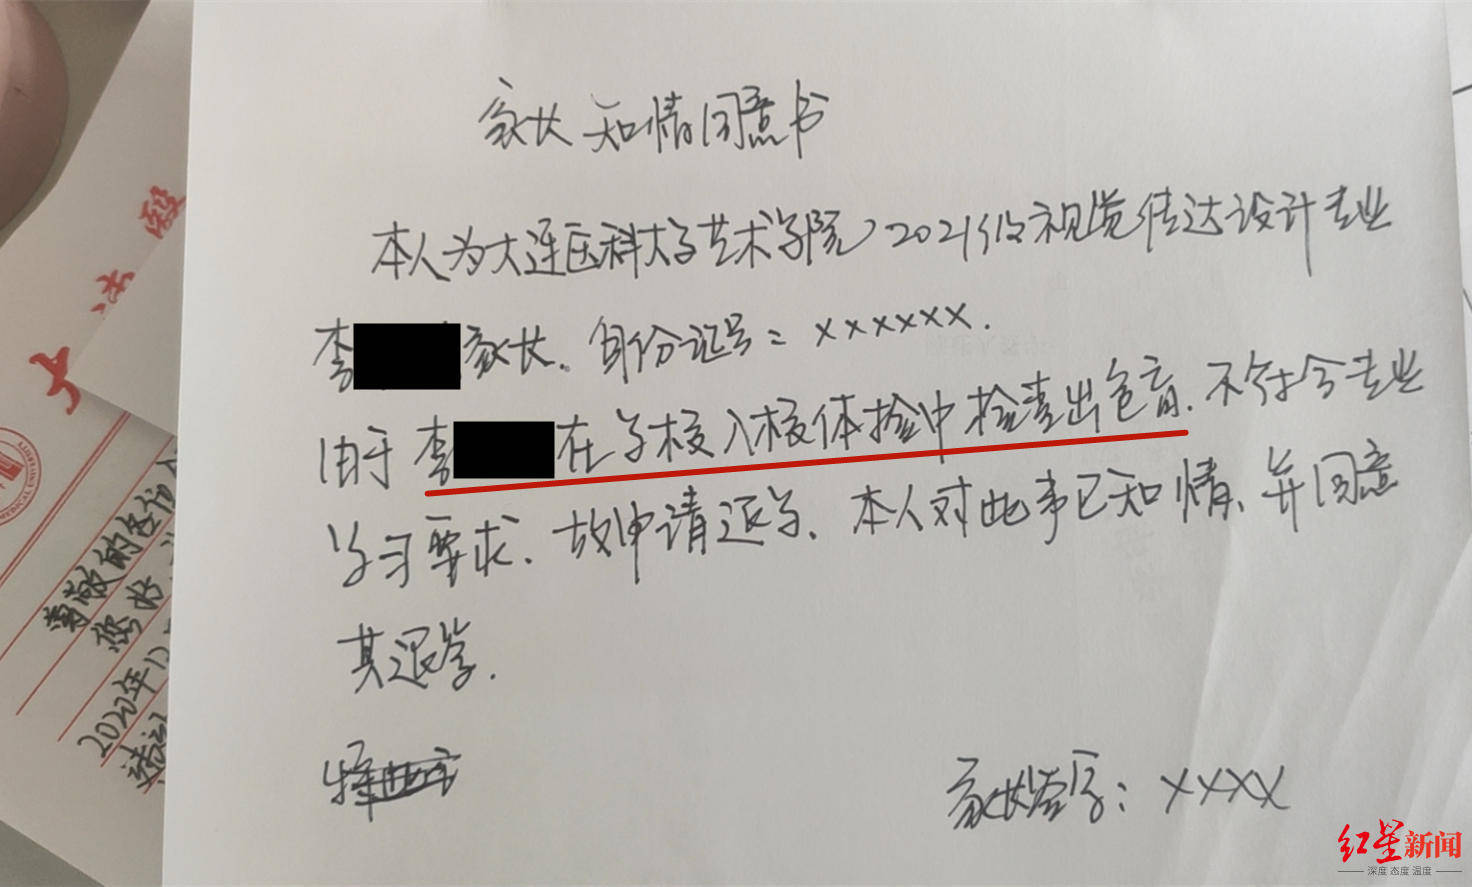 家长知情同意书
本人为大连医科大学艺术学院2021级视觉传达设计专业
李 家长。身份证号：xxxxxx.
由于李 在学校入校体检中检查出色盲.不符合专业
学习要求.故申请退学、本人对此事已知情、并同意
其退学.
家长签字：xxxx
尊敬的各份
您好
2020年12
MEDICAL UNIVERSITY
红星新闻
深度 态度 温度